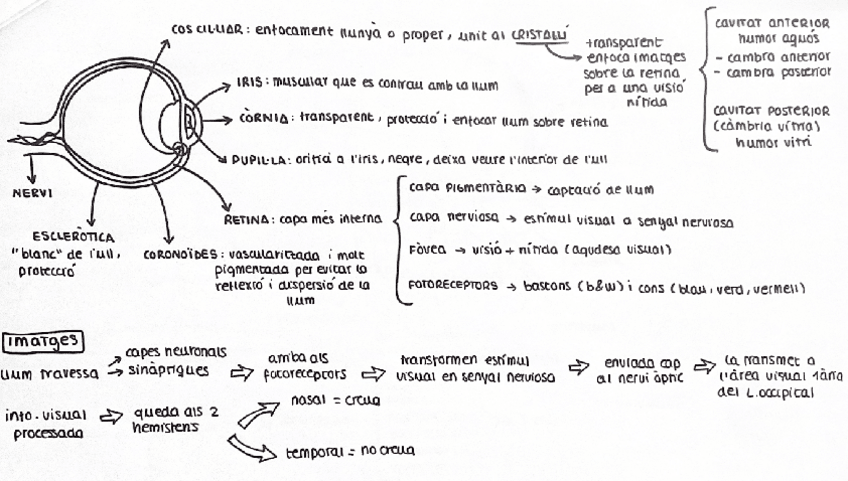 COS CILIAR: enfocament llunyà o proper, unit al CRISTALLÍ
transparent
enfoca imatges
sobre la retina
per a una visió
nítida
CAVITAT ANTERIOR
humor aquós
- cambra anterior
- cambra posterior
CAVITAT POSTERIOR
(càmbria vítria)
humor vitri
IRIS: muscular que es contrau amb la llum
CÒRNIA: transparent, protecció i enfocar llum sobre retina
PUPIL·LA: orifici a l'iris, negre, deixa veure l'interior de l'ull
NERVI
ESCLERÒTICA
"blanc" de l'ull,
protecció
CORONOÏDES: vascularitzada i molt
pigmentada per evitar la
reflexió i dispersió de la
llum
RETINA: capa més interna
CAPA PIGMENTÀRIA → captació de llum
CAPA nerviosa → estímul visual a senyal nerviosa
FÒVEA → visió + nítida (agudesa visual)
FOTORECEPTORS → bastons (b&w) i cons (blau, verd, vermell)
imatges
llum travessa → capes neuronals
→ sinàptiques
⇨ arriba als
fotoreceptors
⇨ transformen estímul
visual en senyal nerviosa
⇨ enviada cap
al nervi òptic
⇨ la transmet a
l'àrea visual 1ària
del L.occipital
info. visual
processada
⇨ queda als 2
hemisferis
nasal = creua
temporal = no creua